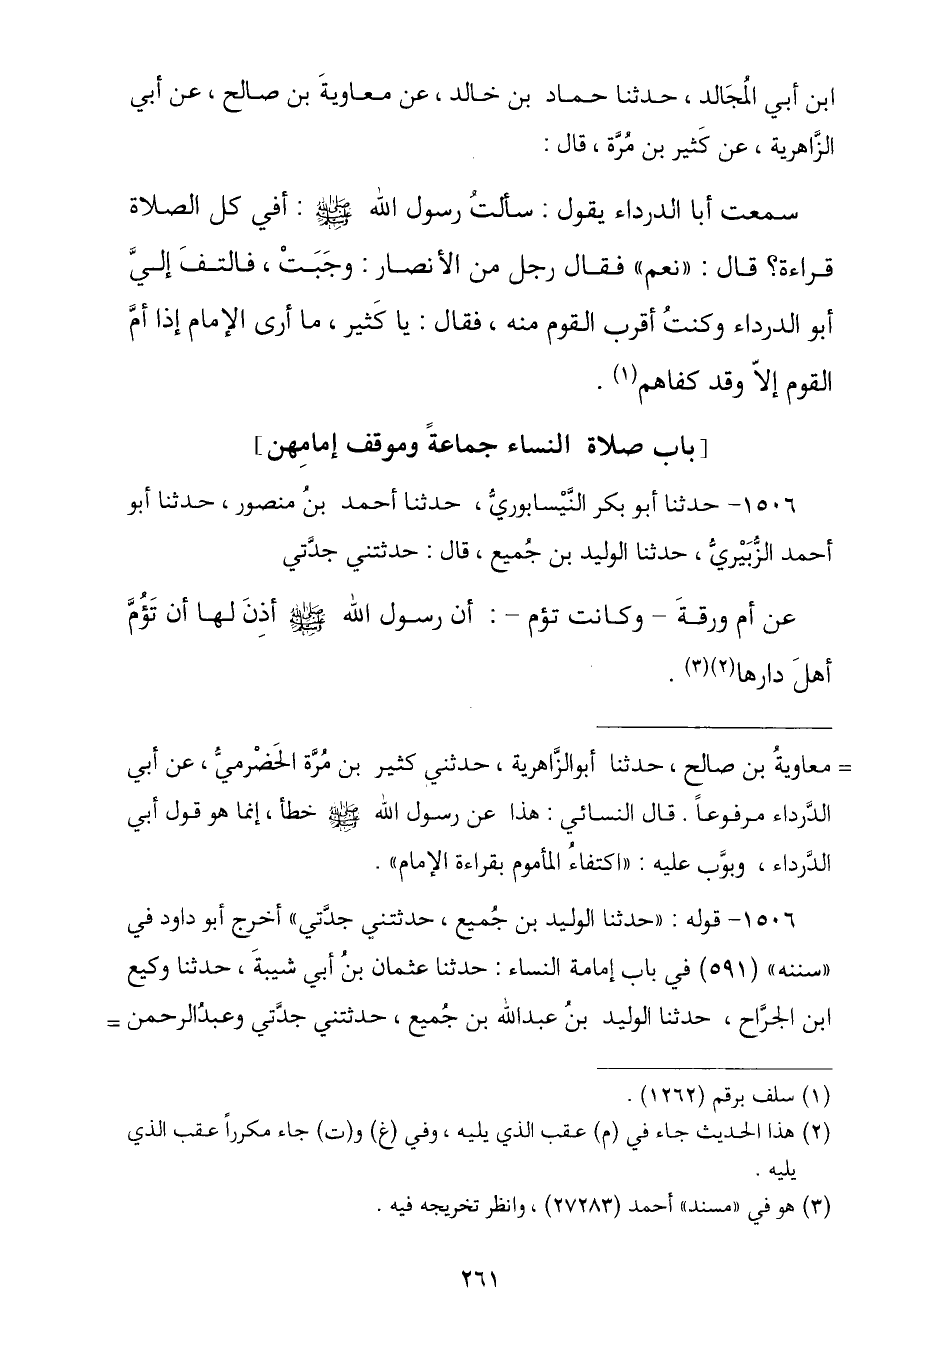 ابن أبي المُجَالد ، حدثنا حماد بن خالد ، عن معاويةَ بن صالح ، عن أبي
الزَّاهرية ، عن كَثير بن مُرَّة ، قال :
سمعت أبا الدرداء يقول : سألتُ رسول الله ﷺ : أفي كل الصلاة
قراءة؟ قال : «نعم» فقال رجل من الأنصار : وجَبَتْ ، فالتفَ إليَّ
أبو الدرداء وكنتُ أقرب القوم منه ، فقال : يا كَثير ، ما أرى الإمام إذا أمَّ
القوم إلاّ وقد كفاهم(١) .
[باب صلاة النساء جماعةً وموقف إمامِهن]
١٥٠٦- حدثنا أبو بكر النَّيْسابوريُّ ، حدثنا أحمد بنُ منصور ، حدثنا أبو
أحمد الزُّبَيْريُّ ، حدثنا الوليد بن جُميع ، قال : حدثتني جدَّتي
عن أم ورقةَ - وكانت تؤم - : أن رسول الله ﷺ أذِنَ لها أن تَؤُمَّ
أهلَ دارها(٢)(٣) .
= معاويةُ بن صالح ، حدثنا أبوالزَّاهرية ، حدثني كثير بن مُرَّة الحَضْرميُّ ، عن أبي
الدَّرداء مرفوعاً . قال النسائي : هذا عن رسول الله ﷺ خطأ ، إنما هو قول أبي
الدَّرداء ، وبوَّب عليه : «اكتفاءُ المأموم بقراءة الإمام» .
١٥٠٦- قوله : «حدثنا الوليد بن جُميع ، حدثتني جدَّتي» أخرج أبو داود في
«سننه» (٥٩١) في باب إمامة النساء : حدثنا عثمان بنُ أبي شيبةَ ، حدثنا وكيع
ابن الجرَّاح ، حدثنا الوليد بنُ عبدالله بن جُميع ، حدثتني جدَّتي وعبدُالرحمن =
(١) سلف برقم (١٢٦٢) .
(٢) هذا الحديث جاء في (م) عقب الذي يليه ، وفي (غ) و(ت) جاء مكرراً عقب الذي
يليه .
(٣) هو في «مسند» أحمد (٢٧٢٨٣) ، وانظر تخريجه فيه .
٢٦١